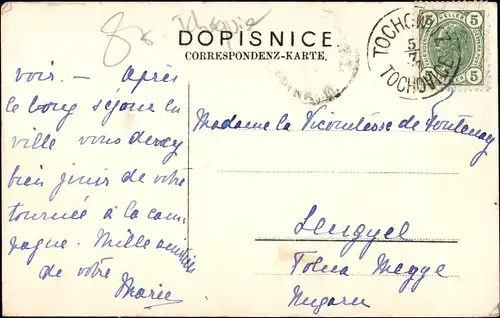 DOPISNICE
CORRESPONDENZ-KARTE.
TOCHOVICE
5
HELLER
5
5
TOCHOVIC
voir. — Après
le long séjour la
ville vous devez
bien jouir de votre
tournée à la cam-
pagne. Mille amitiés
de votre
Marie
Madame la Vicomtesse de Fontenay
Lengyel
Tolna Megye
Ungarn